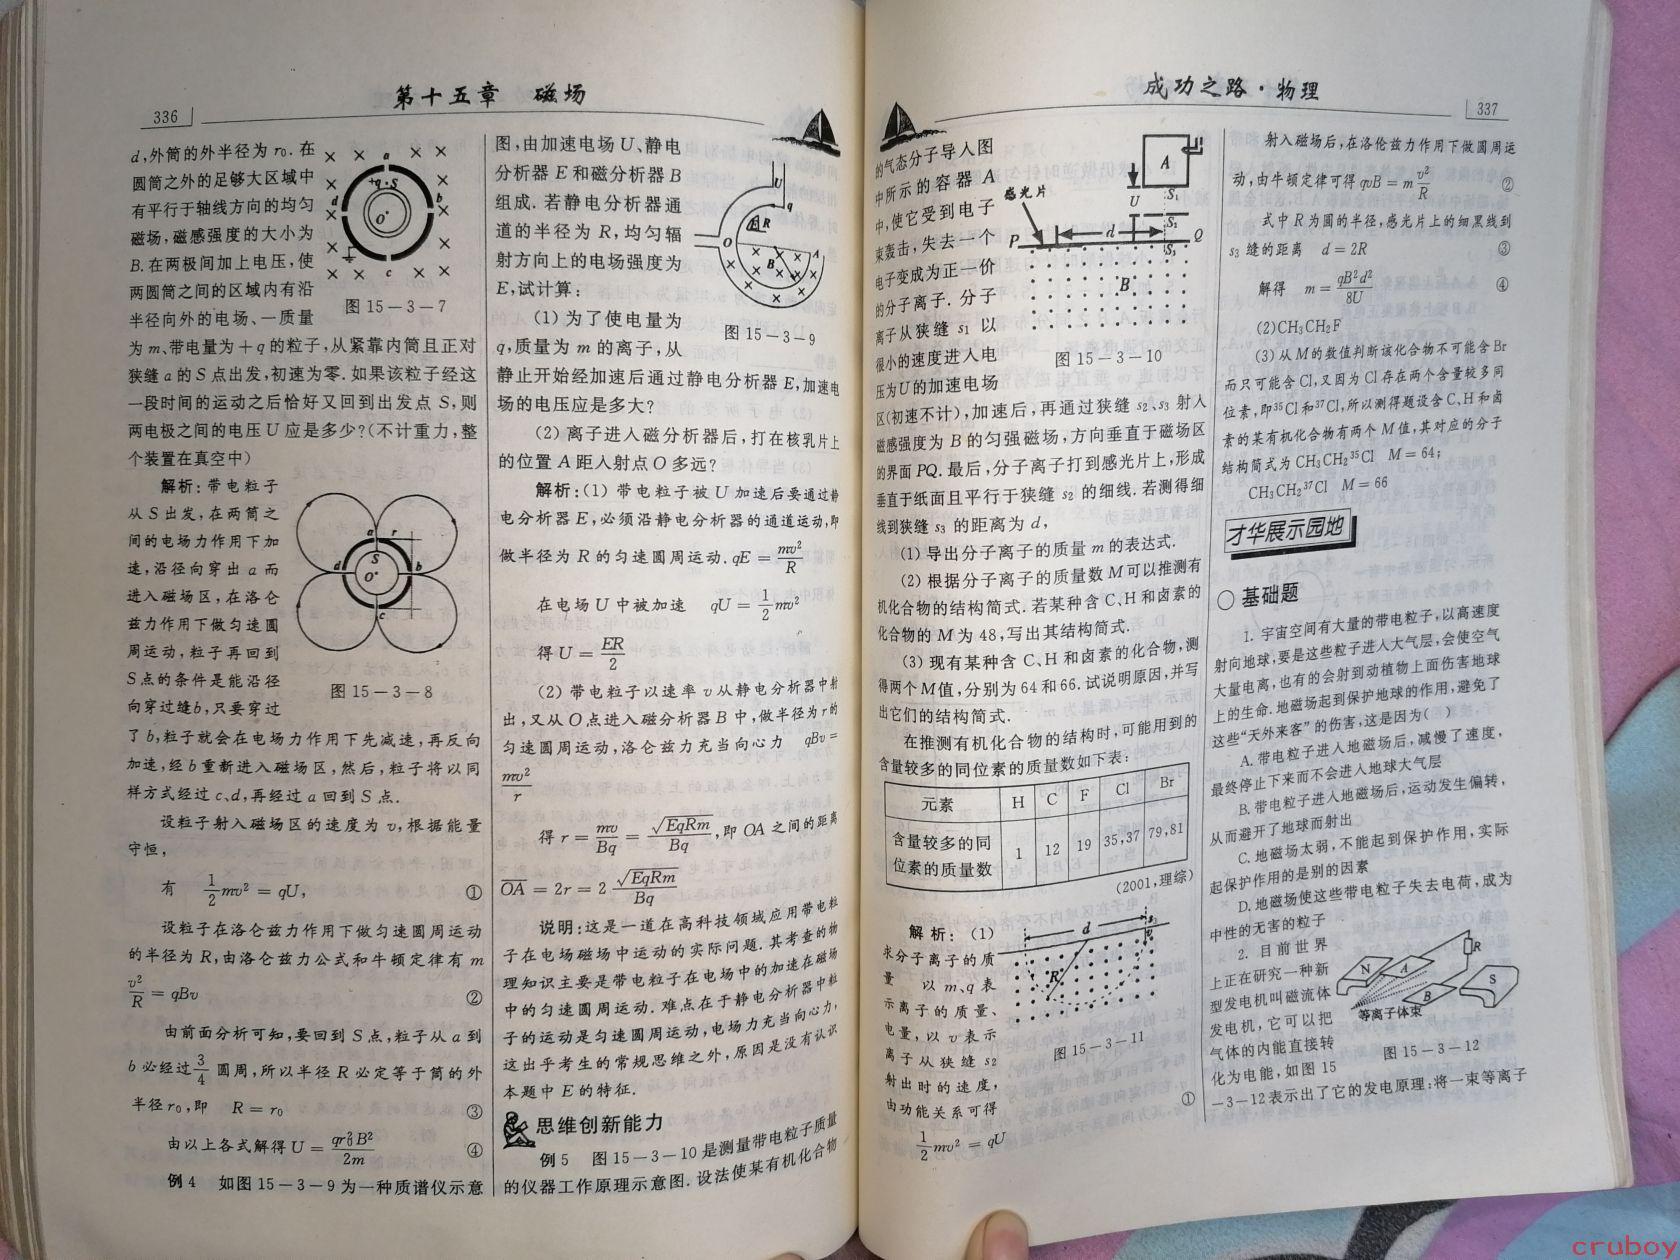 336
第十五章 磁场
d,外筒的外半径为 r₀. 在
圆筒之外的足够大区域中
有平行于轴线方向的均匀
磁场,磁感强度的大小为
B. 在两极间加上电压,使
两圆筒之间的区域内有沿
半径向外的电场、一质量
为 m、带电量为+q 的粒子,从紧靠内筒且正对
狭缝 a 的 S 点出发,初速为零. 如果该粒子经这
一段时间的运动之后恰好又回到出发点 S,则
两电极之间的电压 U 应是多少?(不计重力,整
个装置在真空中)
a
+q·S
d
b
O
c
图 15-3-7
解析:带电粒子
从 S 出发,在两筒之
间的电场力作用下加
速,沿径向穿出 a 而
进入磁场区,在洛仑
兹力作用下做匀速圆
周运动,粒子再回到
S 点的条件是能沿径
向穿过缝 b,只要穿过
了 b,粒子就会在电场力作用下先减速,再反向
加速,经 b 重新进入磁场区,然后,粒子将以同
样方式经过 c、d,再经过 a 回到 S 点.
a r
S
d
O
b
c
图 15-3-8
设粒子射入磁场区的速度为 v,根据能量
守恒,
有 1/2 mv² = qU, ①
设粒子在洛仑兹力作用下做匀速圆周运动
的半径为 R,由洛仑兹力公式和牛顿定律有 m
v²/R = qBv ②
由前面分析可知,要回到 S 点,粒子从 a 到
b 必经过 3/4 圆周,所以半径 R 必定等于筒的外
半径 r₀,即 R = r₀ ③
由以上各式解得 U = qr₀²B²/2m ④
例 4 如图 15-3-9 为一种质谱仪示意
图,由加速电场 U、静电
分析器 E 和磁分析器 B
组成. 若静电分析器通
道的半径为 R,均匀辐
射方向上的电场强度为
E,试计算:
(1) 为了使电量为
q,质量为 m 的离子,从
静止开始经加速后通过静电分析器 E,加速电
场的电压应是多大?
(2) 离子进入磁分析器后,打在核乳片上
的位置 A 距入射点 O 多远?
U
q
E R
O
A
B
图 15-3-9
解析:(1) 带电粒子被 U 加速后要通过静
电分析器 E,必须沿静电分析器的通道运动,即
做半径为 R 的匀速圆周运动. qE = mv²/R
在电场 U 中被加速 qU = 1/2 mv²
得 U = ER/2
(2) 带电粒子以速率 v 从静电分析器中射
出,又从 O 点进入磁分析器 B 中,做半径为 r 的
匀速圆周运动,洛仑兹力充当向心力 qBv =
mv²/r
得 r = mv/Bq = √EqRm/Bq,即 OA 之间的距离
OA = 2r = 2 √EqRm/Bq
说明:这是一道在高科技领域应用带电粒
子在电场磁场中运动的实际问题. 其考查的物
理知识主要是带电粒子在电场中的加速在磁场
中的匀速圆周运动. 难点在于静电分析器中粒
子的运动是匀速圆周运动,电场力充当向心力,
这出乎考生的常规思维之外,原因是没有认识
本题中 E 的特征.
思维创新能力
例 5 图 15-3-10 是测量带电粒子质量
的仪器工作原理示意图. 设法使某有机化合物
成功之路·物理
337
的气态分子导入图
中所示的容器 A
中,使它受到电子
束轰击,失去一个
电子变成为正一价
的分子离子. 分子
离子从狭缝 s₁ 以
很小的速度进入电
压为 U 的加速电场
区(初速不计),加速后,再通过狭缝 s₂、s₃ 射入
磁感强度为 B 的匀强磁场,方向垂直于磁场区
的界面 PQ. 最后,分子离子打到感光片上,形成
垂直于纸面且平行于狭缝 s₂ 的细线. 若测得细
线到狭缝 s₃ 的距离为 d,
A
感光片
S₁
U
S₂
P
d
Q
S₃
B
图 15-3-10
(1) 导出分子离子的质量 m 的表达式.
(2) 根据分子离子的质量数 M 可以推测有
机化合物的结构简式. 若某种含 C、H 和卤素的
化合物的 M 为 48,写出其结构简式.
(3) 现有某种含 C、H 和卤素的化合物,测
得两个 M 值,分别为 64 和 66. 试说明原因,并写
出它们的结构简式.
在推测有机化合物的结构时,可能用到的
含量较多的同位素的质量数如下表:
元素 H C F Cl Br
含量较多的同位素的质量数 1 12 19 35,37 79,81
(2001,理综)
解析:(1)
求分子离子的质
量 以 m、q 表
示离子的质量、
电量,以 v 表示
离子从狭缝 s₂
射出时的速度,
由功能关系可得
1/2 mv² = qU ①
d
R
图 15-3-11
射入磁场后,在洛伦兹力作用下做圆周运
动,由牛顿定律可得 qvB = m v²/R ②
式中 R 为圆的半径,感光片上的细黑线到
s₃ 缝的距离 d = 2R ③
解得 m = qB²d²/8U ④
(2)CH₃CH₂F
(3) 从 M 的数值判断该化合物不可能含 Br
而只可能含 Cl,又因为 Cl 存在两个含量较多同
位素,即³⁵Cl 和³⁷Cl,所以测得题设含 C、H 和卤
素的某有机化合物有两个 M 值,其对应的分子
结构简式为 CH₃CH₂³⁵Cl M = 64;
CH₃CH₂³⁷Cl M = 66
才华展示园地
○ 基础题
1. 宇宙空间有大量的带电粒子,以高速度
射向地球,要是这些粒子进入大气层,会使空气
大量电离,也有的会射到动植物上面伤害地球
上的生命. 地磁场起到保护地球的作用,避免了
这些“天外来客”的伤害,这是因为( )
A. 带电粒子进入地磁场后,减慢了速度,
最终停止下来而不会进入地球大气层
B. 带电粒子进入地磁场后,运动发生偏转,
从而避开了地球而射出
C. 地磁场太弱,不能起到保护作用,实际
起保护作用的是别的因素
D. 地磁场使这些带电粒子失去电荷,成为
中性的无害的粒子
2. 目前世界
上正在研究一种新
型发电机叫磁流体
发电机,它可以把
气体的内能直接转
化为电能,如图 15
-3-12 表示出了它的发电原理:将一束等离子
N
A
B
R
S
等离子体束
图 15-3-12
cruboy